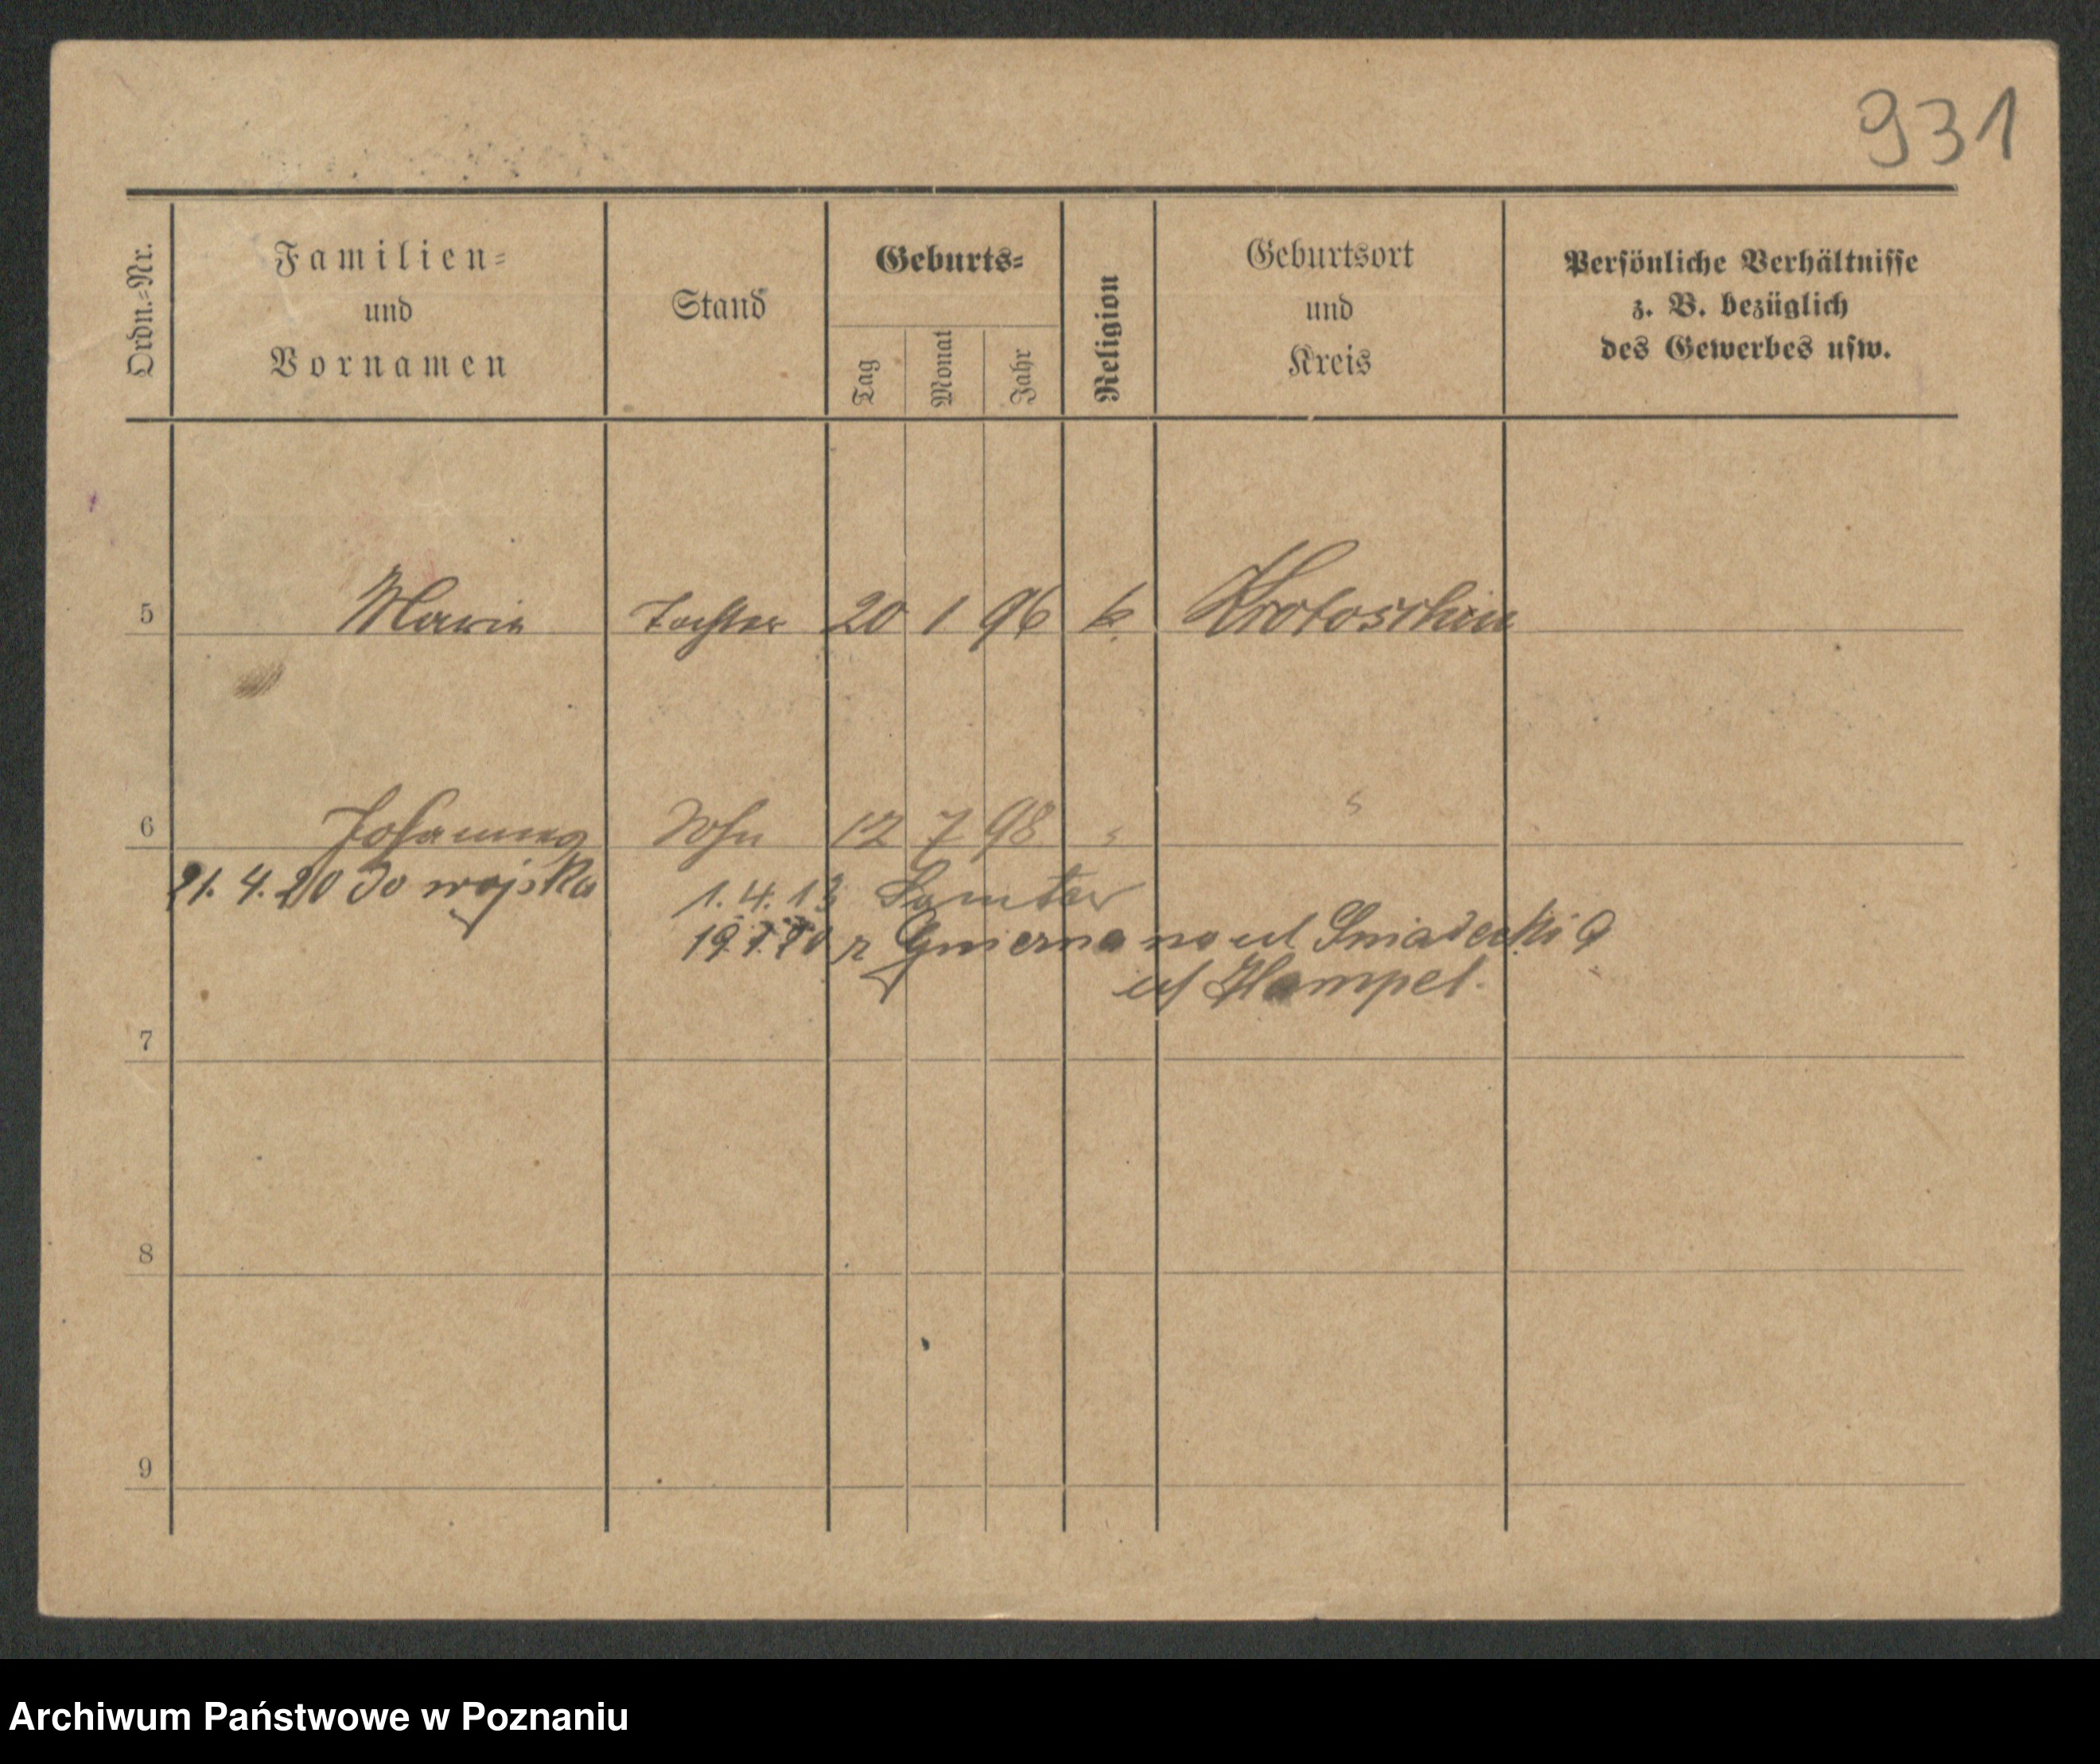 931
Ordn.-Nr.
Familien-
und
Vornamen
Stand
Geburts-
Tag
Monat
Jahr
Religion
Geburtsort
und
Kreis
Persönliche Verhältnisse
z. B. bezüglich
des Gewerbes usw.
5 Marie Tochter 20 1 96 k. Krotoschin
6 Johannes Sohn 12 7 98 " "
21.4.20 do wojska
1.4.13 Samter
19.7.20 z Gniezna na ul Sniadecki 9
ul Hampel.
7
8
9
Archiwum Państwowe w Poznaniu